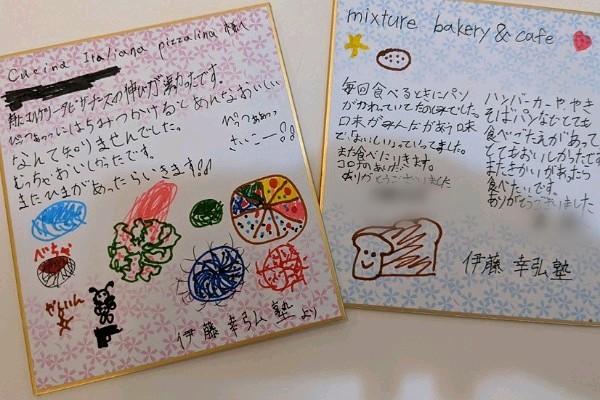 Cucina Italiana pizzalina 様へ
チーズの伸びが凄かったです。
ぴっつぁにはちみつかけるとあんなおいしい
なんて知りませんでした。
むっちゃおいしかったです。
またひまがあったらいきます!!
ぴっつぁっ
さいこー!!
べちか
ぜんいん
伊藤幸弘塾より
mixture bakery & cafe
毎回食べるときにパン
がかわっていてたのしみでした。
口米がみんなちがう味
で「おいしい」っていってました。
また食べに行きます。
ありがとうございました
ハンバーカーややき
そばパンなどとても
食べごたえがあって
とてもおいしかったです
またきかいがあったら
食べたいです。
ありがとうございました
伊藤 幸弘塾